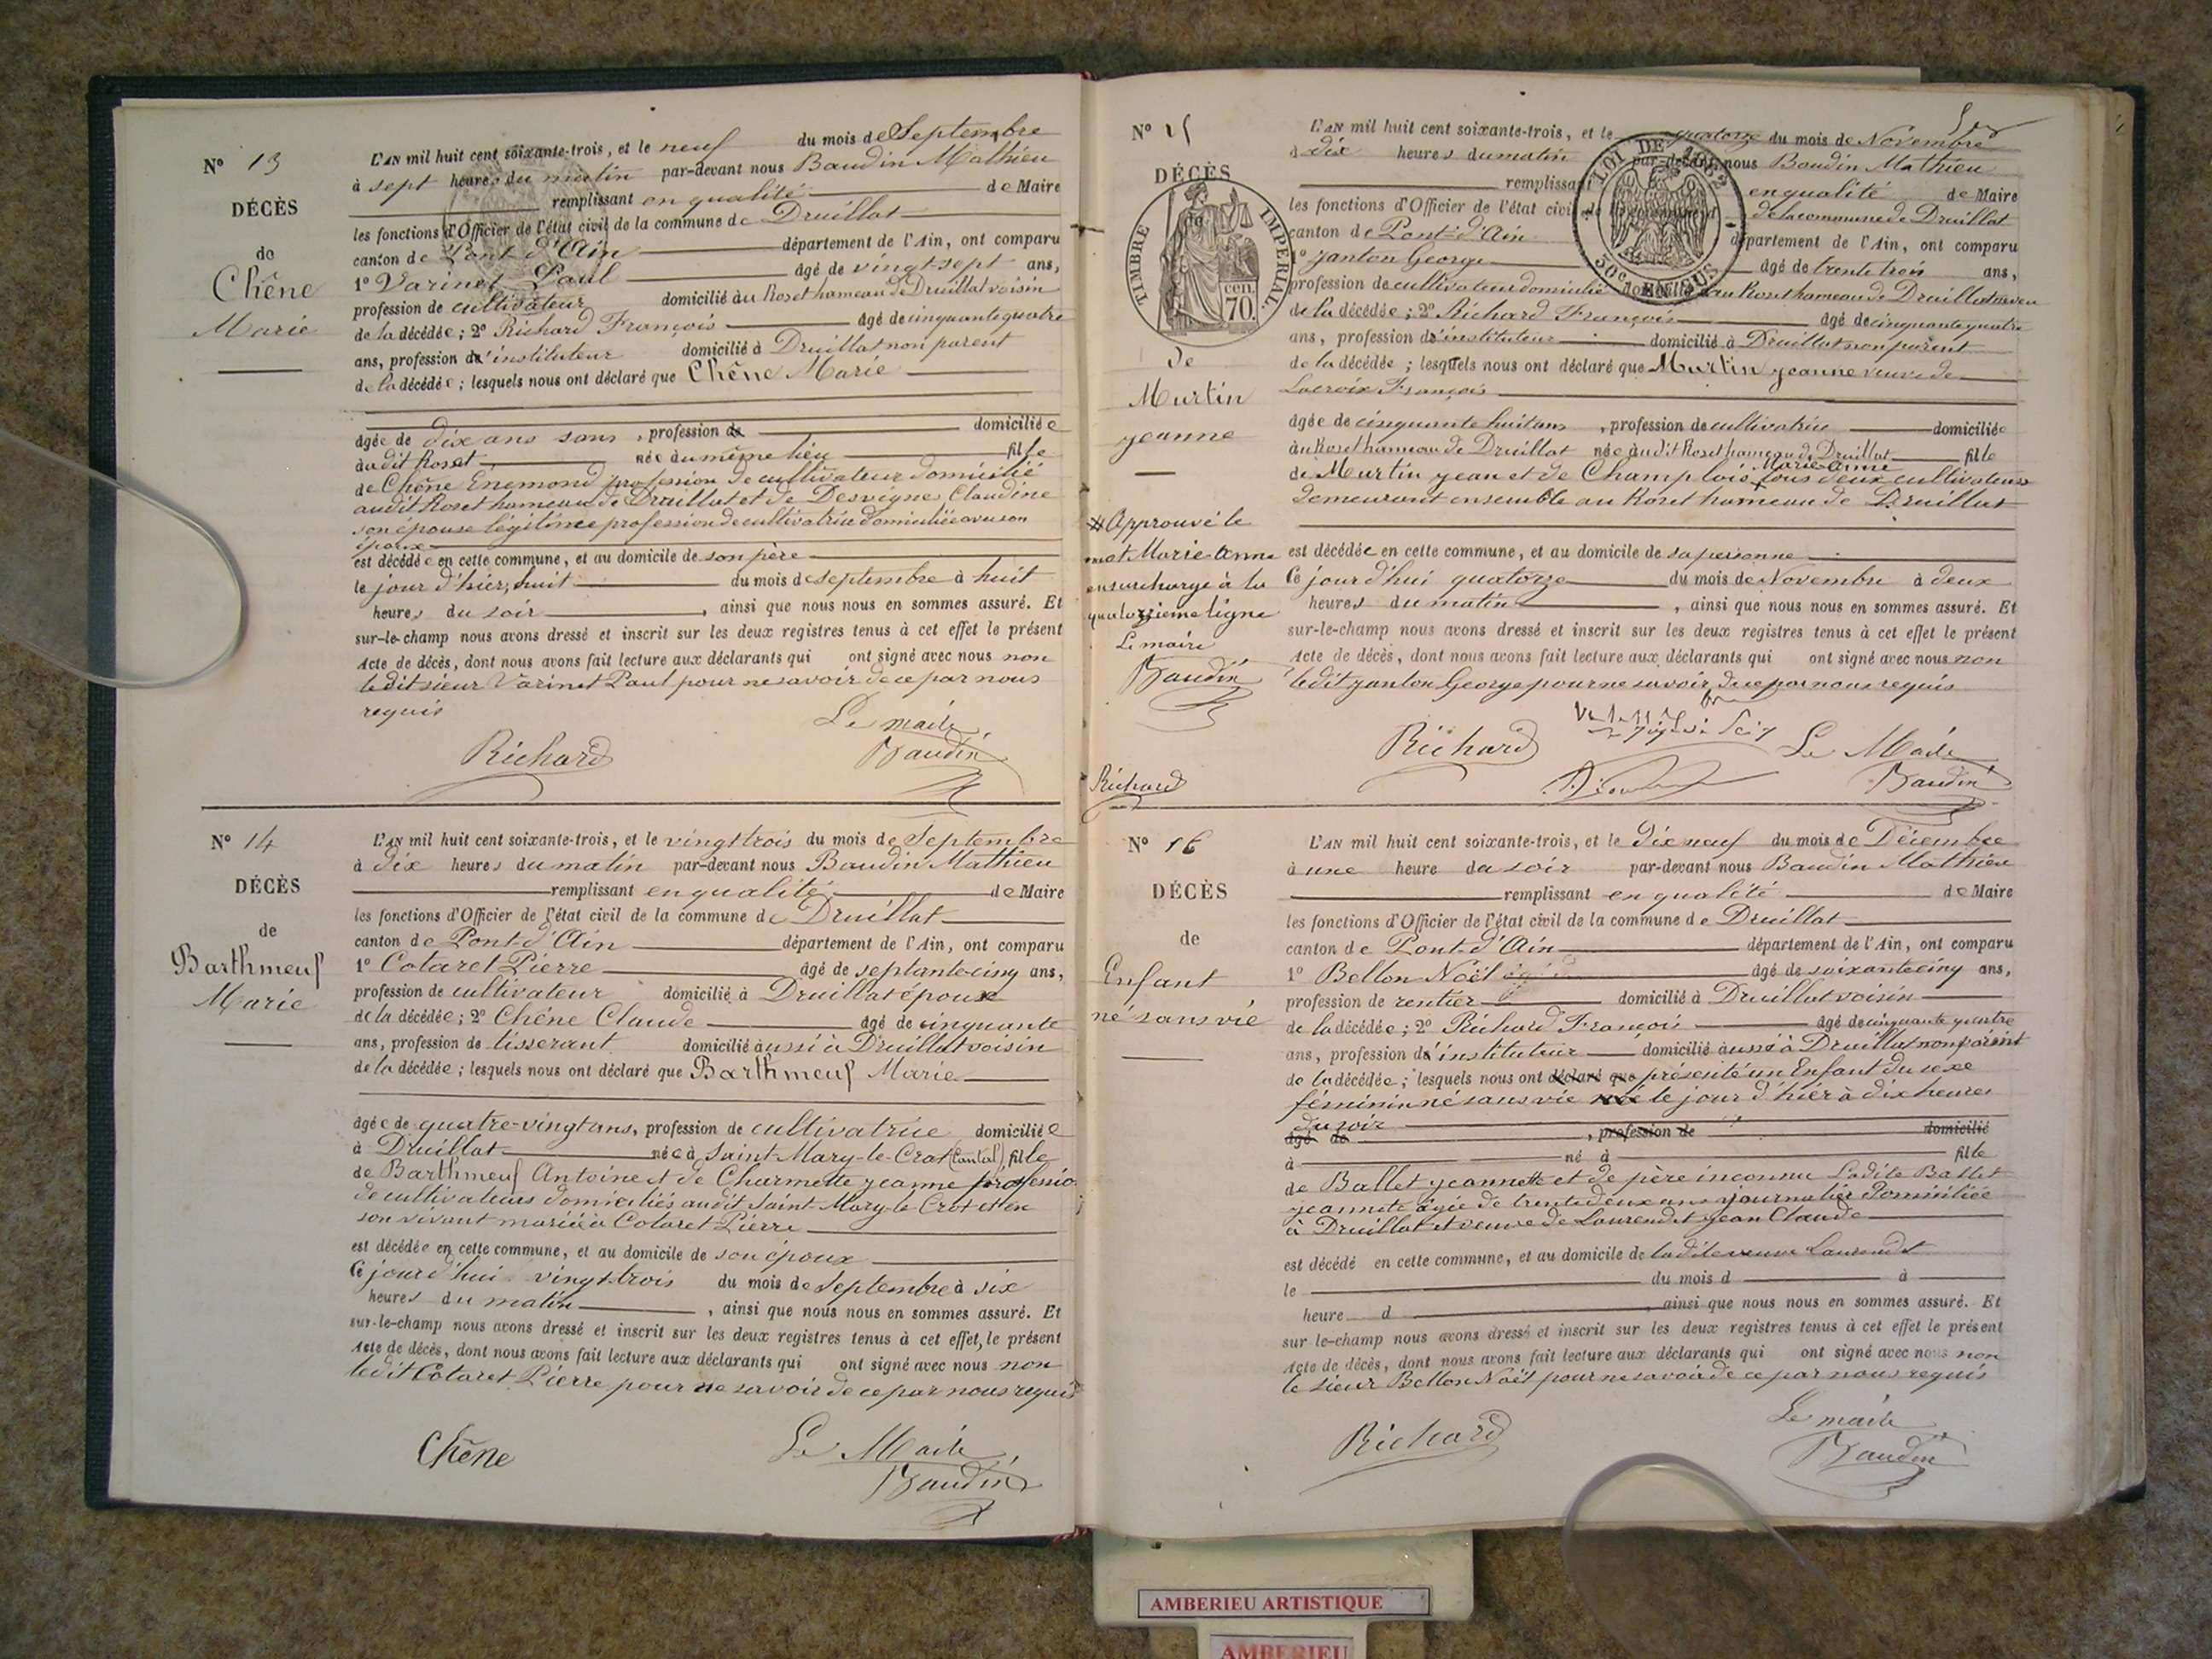 N° 13
DÉCÈS
de
Chêne
Marie
L'AN mil huit cent soixante-trois, et le neuf du mois de Septembre
à sept heures du matin par-devant nous Baudin Mathieu
remplissant en qualité de Maire
les fonctions d'Officier de l'état civil de la commune de Druillat
canton de Pont-d'Ain département de l'Ain, ont comparu
1° Varinet Paul âgé de vingt-sept ans,
profession de cultivateur domicilié au Roset hameau de Druillat voisin
de la décédée; 2° Richard François âgé de cinquante quatre
ans, profession d'instituteur domicilié à Druillat non parent
de la décédée; lesquels nous ont déclaré que Chêne Marie
âgée de dix ans sans, profession de domiciliée
audit Roset née au même lieu fille
de Chêne Enemond profession de cultivateur domicilié
audit Roset hameau de Druillat et de Desvignes Claudine
son épouse légitime profession de cultivatrice domiciliée avec son
époux
est décédée en cette commune, et au domicile de son père
le jour d'hier, huit du mois de septembre à huit
heures du soir, ainsi que nous nous en sommes assuré. Et
sur-le-champ nous avons dressé et inscrit sur les deux registres tenus à cet effet le présent
Acte de décès, dont nous avons fait lecture aux déclarants qui ont signé avec nous non
ledit sieur Varinet Paul pour ne savoir de ce par nous
requis
Le maire
Richard Baudin
N° 14
DÉCÈS
de
Barthmeuf
Marie
L'AN mil huit cent soixante-trois, et le vingt trois du mois de Septembre
à dix heures du matin par-devant nous Baudin Mathieu
remplissant en qualité de Maire
les fonctions d'Officier de l'état civil de la commune de Druillat
canton de Pont-d'Ain département de l'Ain, ont comparu
1° Cotaret Pierre âgé de septante-cinq ans,
profession de cultivateur domicilié à Druillat époux
de la décédée; 2° Chêne Claude âgé de cinquante
ans, profession de tisserant domicilié aussi à Druillat voisin
de la décédée; lesquels nous ont déclaré que Barthmeuf Marie
âgée de quatre-vingt ans, profession de cultivatrice domiciliée
à Druillat née à Saint-Mary-le-Crot (Cantal) fille
de Barthmeuf Antoine et de Charmette yeanne professio
de cultivateurs domiciliés audit Saint Mary-le Crot et en
son vivant mariée à Cotaret Pierre
est décédée en cette commune, et au domicile de son époux
Ce jourd'hui vingt trois du mois de Septembre à six
heures du matin, ainsi que nous nous en sommes assuré. Et
sur-le-champ nous avons dressé et inscrit sur les deux registres tenus à cet effet, le présent
Acte de décès, dont nous avons fait lecture aux déclarants qui ont signé avec nous non
ledit Cotaret Pierre pour ne savoir de ce par nous requis
Chêne Le Maire
Baudin
N° 15
DÉCÈS
TIMBRE IMPÉRIAL
70 cen.
de
Murtin
yeanne
#Approuvé le
mot Marie-Anne
en surcharge à la
quatorzième ligne
Le maire
Baudin
Richard
LOI DE 1862
30c EN SUS
L'AN mil huit cent soixante-trois, et le quatorze du mois de Novembre
à dix heures du matin par-devant nous Baudin Mathieu
remplissant en qualité de Maire
les fonctions d'Officier de l'état civil de la commune de Druillat
canton de Pont-d'Ain département de l'Ain, ont comparu
1° yanton George âgé de trente trois ans,
profession de cultivateur domicilié au Roset hameau de Druillat neveu
de la décédée; 2° Richard François âgé de cinquante quatre
ans, profession d'instituteur domicilié à Druillat non parent
de la décédée; lesquels nous ont déclaré que Murtin yeanne veuve de
Lacroix François
âgée de cinquante huit ans, profession de cultivatrice domiciliée
au Roset hameau de Druillat née audit Roset hameau de Druillat fille
Marie-Anne
de Murtin yean et de Champlois tous deux cultivateurs
demeurant ensemble au Roset hameau de Druillat
est décédée en cette commune, et au domicile de sa personne
Ce jourd'hui quatorze du mois de Novembre à deux
heures du matin, ainsi que nous nous en sommes assuré. Et
sur-le-champ nous avons dressé et inscrit sur les deux registres tenus à cet effet le présent
Acte de décès, dont nous avons fait lecture aux déclarants qui ont signé avec nous non
ledit yanton George pour ne savoir de ce par nous requis
Richard Le Maire
Baudin
N° 16
DÉCÈS
de
Enfant
né sans vie
L'AN mil huit cent soixante-trois, et le dix neuf du mois de Décembre
à une heure du soir par-devant nous Baudin Mathieu
remplissant en qualité de Maire
les fonctions d'Officier de l'état civil de la commune de Druillat
canton de Pont-d'Ain département de l'Ain, ont comparu
1° Bellon Noël âgé de soixante cinq ans,
profession de rentier domicilié à Druillat voisin
de la décédée; 2° Richard François âgé de cinquante quatre
ans, profession d'instituteur domicilié aussi à Druillat non parent
de la décédée; lesquels nous ont déclaré que présenté un Enfant du sexe
féminin né sans vie le jour d'hier à dix heures
du soir
âgé de , profession de domicilié
à né à fille
de Ballet yeannette et de père inconnu Ladite Ballet
yeannete âgée de trente deux ans journalier domiciliée
à Druillat et veuve de Laurendet yean Claude
est décédé en cette commune, et au domicile de ladite veuve Laurendet
le du mois d à
heure d , ainsi que nous nous en sommes assuré. Et
sur-le-champ nous avons dressé et inscrit sur les deux registres tenus à cet effet le présent
Acte de décès, dont nous avons fait lecture aux déclarants qui ont signé avec nous non
le sieur Bellon Noël pour ne savoir de ce par nous requis
Le maire
Richard Baudin
AMBERIEU ARTISTIQUE
AMBERIEU